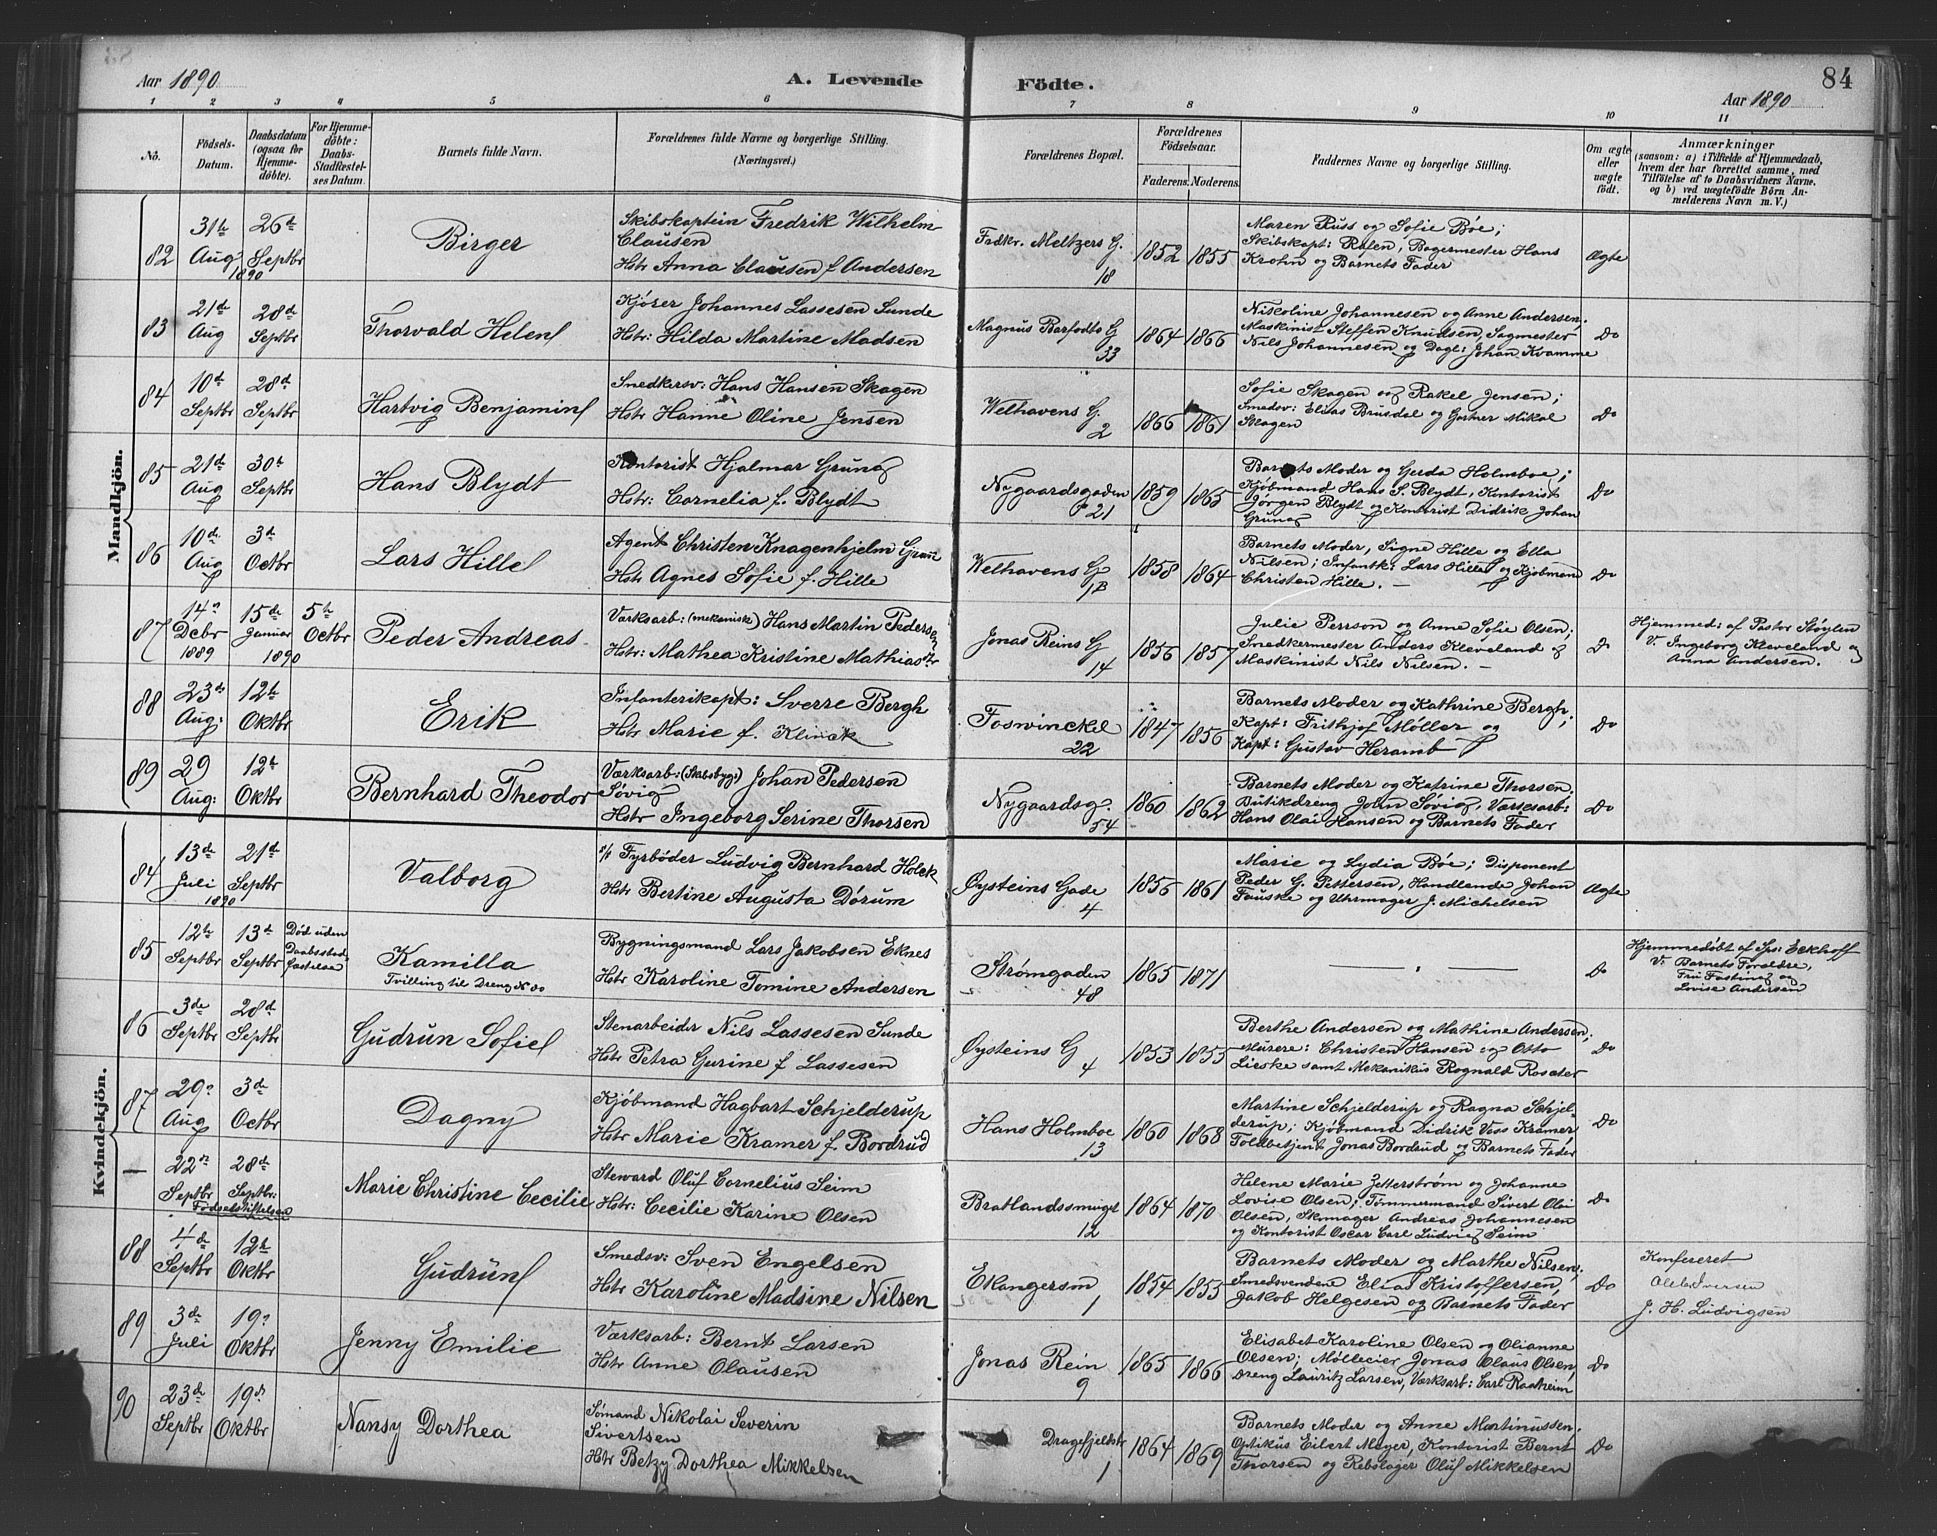 Aar 1890
A. Levende
Födte.
84
Aar 1890
1 2 3 4 5 6 7 8 9 10 11
No.
Födsels-Datum.
Daabsdatum (ogsaa for Hjemme-döbte).
For Hjemme-döbte: Daabs-Stadfæstel-ses Datum.
Barnets fulde Navn.
Forældrenes fulde Navne og borgerlige Stilling. (Næringsvei.)
Forældrenes Bopæl.
Forældrenes Födselsaar.
Faderens. Moderens.
Faddernes Navne og borgerlige Stilling.
Om ægte eller uægte födt.
Anmærkninger
(saasom: a) i Tilfælde af Hjemmedaab, hvem der har forrettet samme, med Tilföielse af to Daabsvidners Navne, og b) ved uægtefödte Börn An-melderens Navn m. V.)
Mandkjön.
82 31te Aug 1890 26de Septbr Birger
Skibskaptein Fredrik Wilhelm
Clausen
Hstr Anna Clausen f Andersen
Fredkr. Meltzers G. 18 1852 1855
Maren Russ og Sofie Bøe;
Skibskapt: Rafen, Bagermester Hans
Krohn og Barnets Fader
Ægte
83 21de Aug 28de Septbr Thorvald Helen
Kjører Johannes Lassesen Sunde
Hstr: Hilda Martine Madsen
Magnus Barfodts G 33 1864 1866
Nikoline Johannesen og Anne Andersen;
Maskinist Steffen Knudsen, Sagmester
Nils Johannesen og Dagl: Johan Kvamme
Do
84 10de Septbr 28de Septbr Hartvig Benjamin
Snedkersv: Hans Hansen Skagen
Hstr Hanne Oline Jensen
Welhavens G. 2 1866 1861
Sofie Skagen og Rakel Jensen;
Smedsv: Elias Brusdal og Gartner Mikal
Skagen
Do
85 21de Aug 30te Septbr Hans Blydt
Kontorist Hjalmar Grung
Hstr: Cornelia f. Blydt
Nygaardsgaden 21 1859 1865
Barnets Moder og Gerda Holmboe;
Kjøbmand Hans S. Blydt, Kontorist
Jørgen Blydt og Kontorist Didrik Johan
Grung
Do
86 10de Aug 3de Octbr Lars Hille
Agent Christen Knagenhjelm Gran
Hstr Agnes Sofie f. Hille
Welhavens G 1B 1858 1864
Barnets Moder, Signe Hille og Ella
Nilsen; Infantk: Lars Hille og Kjøbmand
Christen Hille. —
Do
87 14de Dcbr 1889 15de Januar 1890 5te Octbr Peder Andreas
Værksarb: (mekaniske) Hans Martin Pedersen
Hstr: Mathea Kristine Mathiasdtr
Jonas Reins G 14 1856 1857
Julie Persson og Anne Sofie Olsen;
Snedkermester Anders Kleveland og
Maskinist Nils Nilsen. —
Do
Hjemmed: af Pastor Støylen
V. Ingeborg Kleveland og
Anna Andersen.
88 23de Aug: 12te Oktbr Erik
Infanterikapt: Sverre Bergh
Hstr Marie f. Klinck
Foswinckel 22 1847 1856
Barnets Moder og Kathrine Bergh;
Kapt: Frithjof Møller og
Kapt: Gustav Heramb
Do
89 29 Aug: 12te Oktbr Bernhard Theodor
Værksarb: (Skibsbyg:) Johan Pedersen
Søvig
Hstr Ingeborg Serine Thorsen
Nygaardsg. 54 1860 1862
Barnets Moder og Katrine Thorsen;
Butikdreng John Søvig, Værksarb:
Hans Olai Hansen og Barnets Fader
Do
Kvindekjön.
84 13de Juli 1890 21de Septbr Valborg
s/s Fyrbøder Ludvig Bernhard Holck
Hstr Bertine Augusta Dørum
Øysteins Gade 4 1856 1861
Marie og Lydia Bøe; Disponent
Peder G. Pettersen, Handlende Johan
Fauske og Uhrmager J. Michelsen
Ægte
85 12te Septbr 13de Septbr Død uden Daabsstadfæstelse Kamilla
Tvilling til Dreng No 80
Bygningsmand Lars Jakobsen Eknes
Hstr Karoline Tomine Andersen
Strømgaden 48 1865 1871
Do
Hjemmedøbt af Sps: Eckhoff
V. Barnets Forældre,
Fru Fasting og
Lovise Andersen
86 3de Septbr 28de Septbr Gudrun Sofie
Stenarbeider Nils Lassesen Sunde
Hstr Petra Gurine f Lassesen
Øysteins G 4 1853 1855
Berthe Andersen og Mathine Andersen;
Murere: Christen Hansen og Otto
Lieske samt Mekanikus Rognald Rosæter
Do
87 29de Aug 3de Octbr Dagny
Kjøbmand Hagbart Schjelderup
Hstr Marie Kramer f. Bordrud
Hans Holmboe 13 1860 1868
Martine Schjelderup og Ragna Schjel-
derup; Kjøbmand Didrik Voss Kramer
Toldbetjent Jonas Bordrud og Barnets Fader
Do
— 22de Septbr 28de Septbr: Fødselsstiftelsen Marie Christine Cecilie
Steward Oluf Cornelius Seim
Hstr: Cecilie Karine Olsen
Bratlandssmuget 12 1864 1870
Helene Marie Zetterstrøm og Johanne
Lovise Olsen; Tømmermand Sivert Olai
Olsen, Skomager Andreas Johannesen
og Kontorist Oscar Carl Ludvig Seim
Do
88 4de Septbr 12te Oktbr Gudrun
Smedsv: Sven Engelsen
Hstr Karoline Madsine Nilsen
Ekangersm 1 1854 1855
Barnets Moder og Marthe Nilsen;
Smedsvendene Elias Kristoffersen,
Jakob Helgesen og Barnets Fader
Do
Konfereret
J. H. Ludvigsen
89 3de Juli 19de Oktbr Jenny Emilie
Værksarb: Bernt Larsen
Hstr Anne Olausen
Jonas Rein 9 1865 1866
Elisabet Karoline Olsen og Olianne
Olsen; Møllecier Jonas Claus Olsen,
Dreng Lauritz Larsen, Værksarb: Carl Raaheim
Do
90 23de Septbr 19de Oktbr Nansy Dorthea
Sømand Nikolai Severin
Sivertsen
Hstr Betzy Dorthea Mikkelsen
Dragefjeldstr 1 1864 1869
Barnets Moder og Anne Martinussen;
Optikus Eilert Meyer, Kontorist Bernt
Thorsen og Rebslager Oluf Mikkelsen
Do